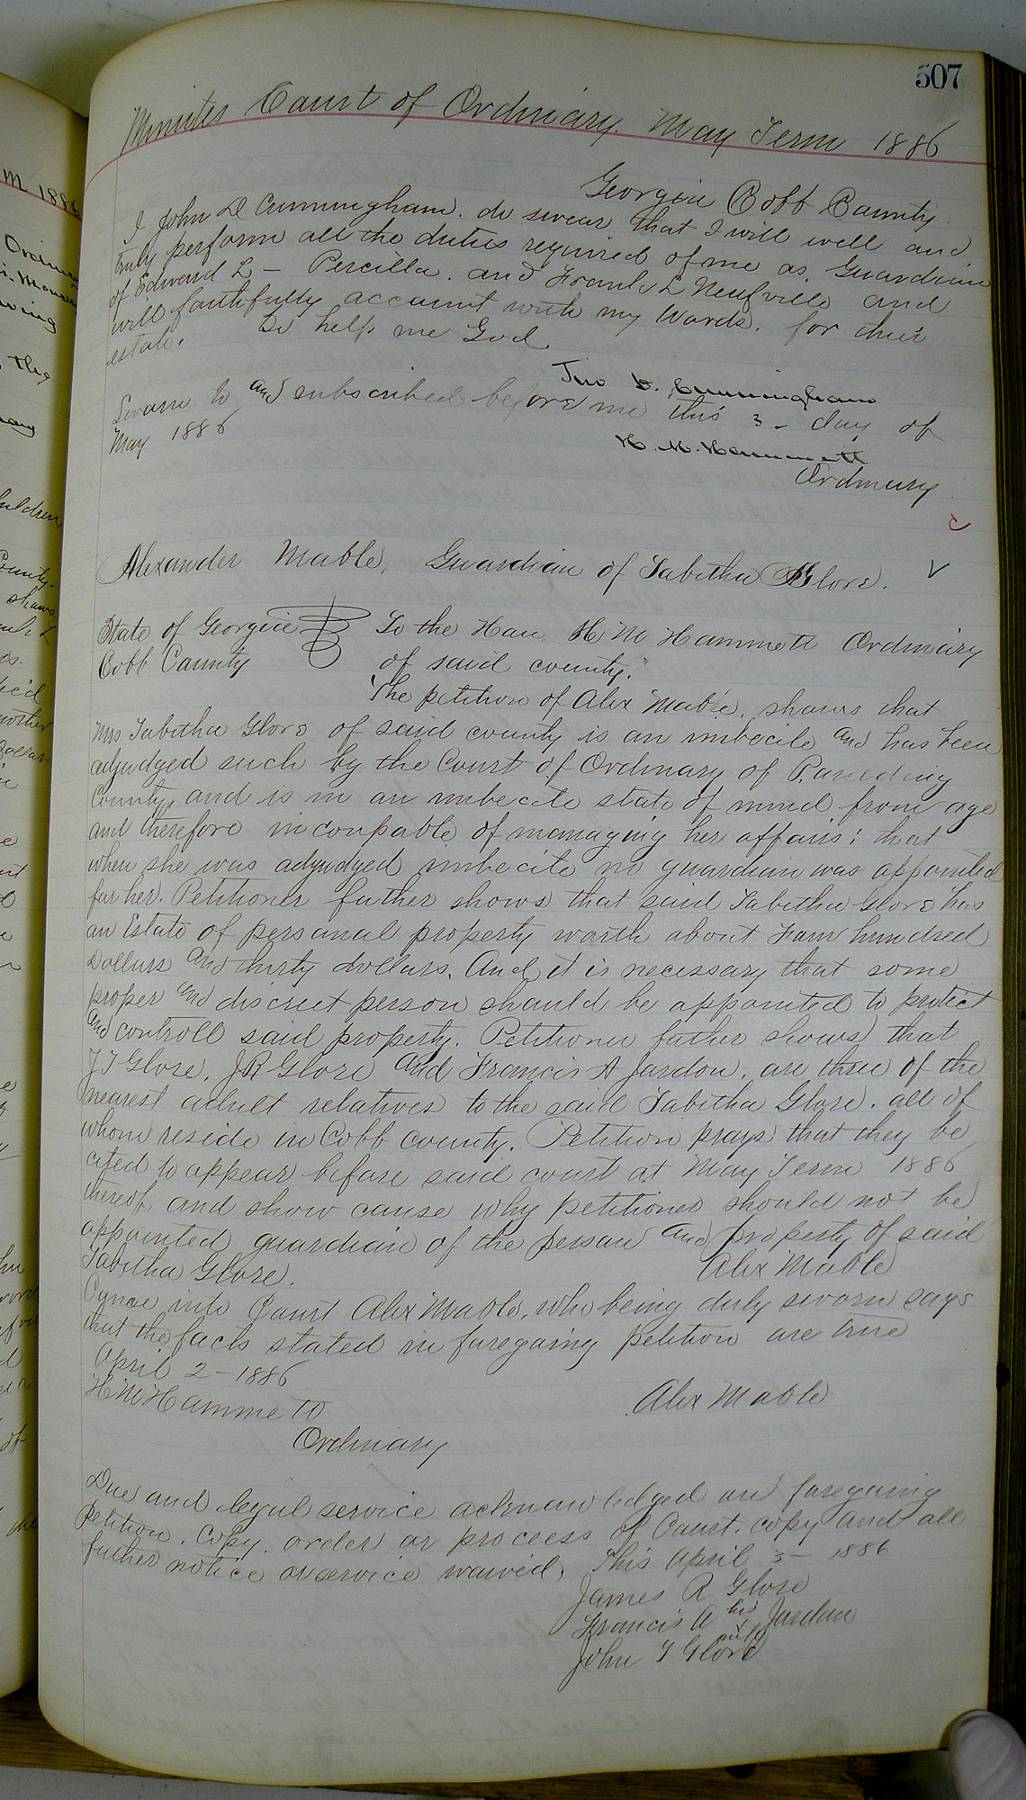 507
Minutes Court of Ordinary May Term 1886
Georgia Cobb County
I John D Cunningham. do swear that I will well and
truly perform all the duties required of me as Guardian
of Edward L - Percilla. and Frank L Neufville and
will faithfully account with my Wards. for their
estate. So help me God
Jno D. Cunningham
Sworn to and subscribed before me this 3 - day of
May 1886
H. M. Hammett
Ordinary
Alexander Mable, Guardian of Tabitha Glore.
State of Georgia To the Hon. H M Hammett Ordinary
Cobb County of said county.
The petition of Alex Mable. shows that
Mrs Tabitha Glore of said county is an imbecile and has been
adjudged such by the Court of Ordinary of Paulding
County, and is in an imbecile state of mind from age
and therefore incoupable of managing her affairs; that
when she was adjudged imbecile no guardian was appointed
for her. Petitioner futher shows that said Tabitha Glore has
an Estate of personal property worth about Four hundred
Dollars and thirty dollars. And it is necessary that some
proper and discreet person should be appointed to protect
and controll said property. Petitioner futher shows that
J T Glore, J R Glore and Francis A Jardon. are three of the
nearest adult relatives to the said Tabitha Glore. all of
whom reside in Cobb county. Petition prays that they be
cited to appear before said court at May Term 1886
thereof and show cause why petitioner should not be
appointed guardian of the person and property of said
Tabitha Glore. Alex Mable
Came into Court Alex Mable. who being duly sworn says
that the facts stated in foregoing petition are true
April 2 - 1886
H M Hammett Alex Mable
Ordinary
Due and legal service acknowledged on foregoing
Petition. Copy. order or process of Court. copy and all
futher notice or service waived, This April 3 - 1886
James R Glore
Francis A his Jardon
mark
John T Glore